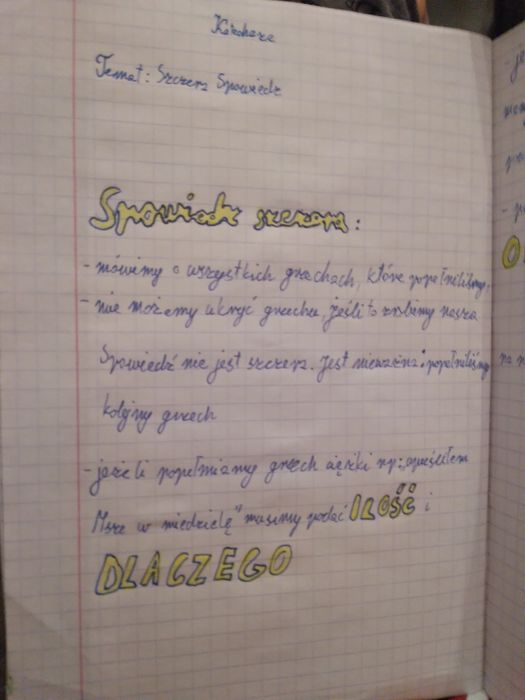 Temat: Szczera Spowiedź
Spowiedź szczera:
- mówimy o wszystkich grzechach, które popełniliśmy.
- nie możemy ukryć grzechu, jeśli to zrobimy nasza
Spowiedź nie jest szczera. Jest nieważna i popełniliśmy
kolejny grzech
- jeżeli popełniamy grzech ciężki np: „opuściłem
Mszę w niedzielę" musimy podać ILOŚĆ i
DLACZEGO